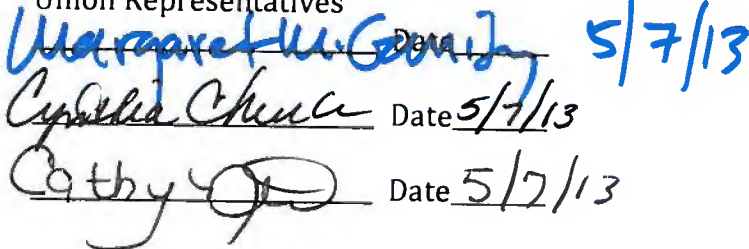 Union Representatives
Margaret M. Date 5/7/13
Cynthia Date 5/7/13
Cathy Date 5/7/13